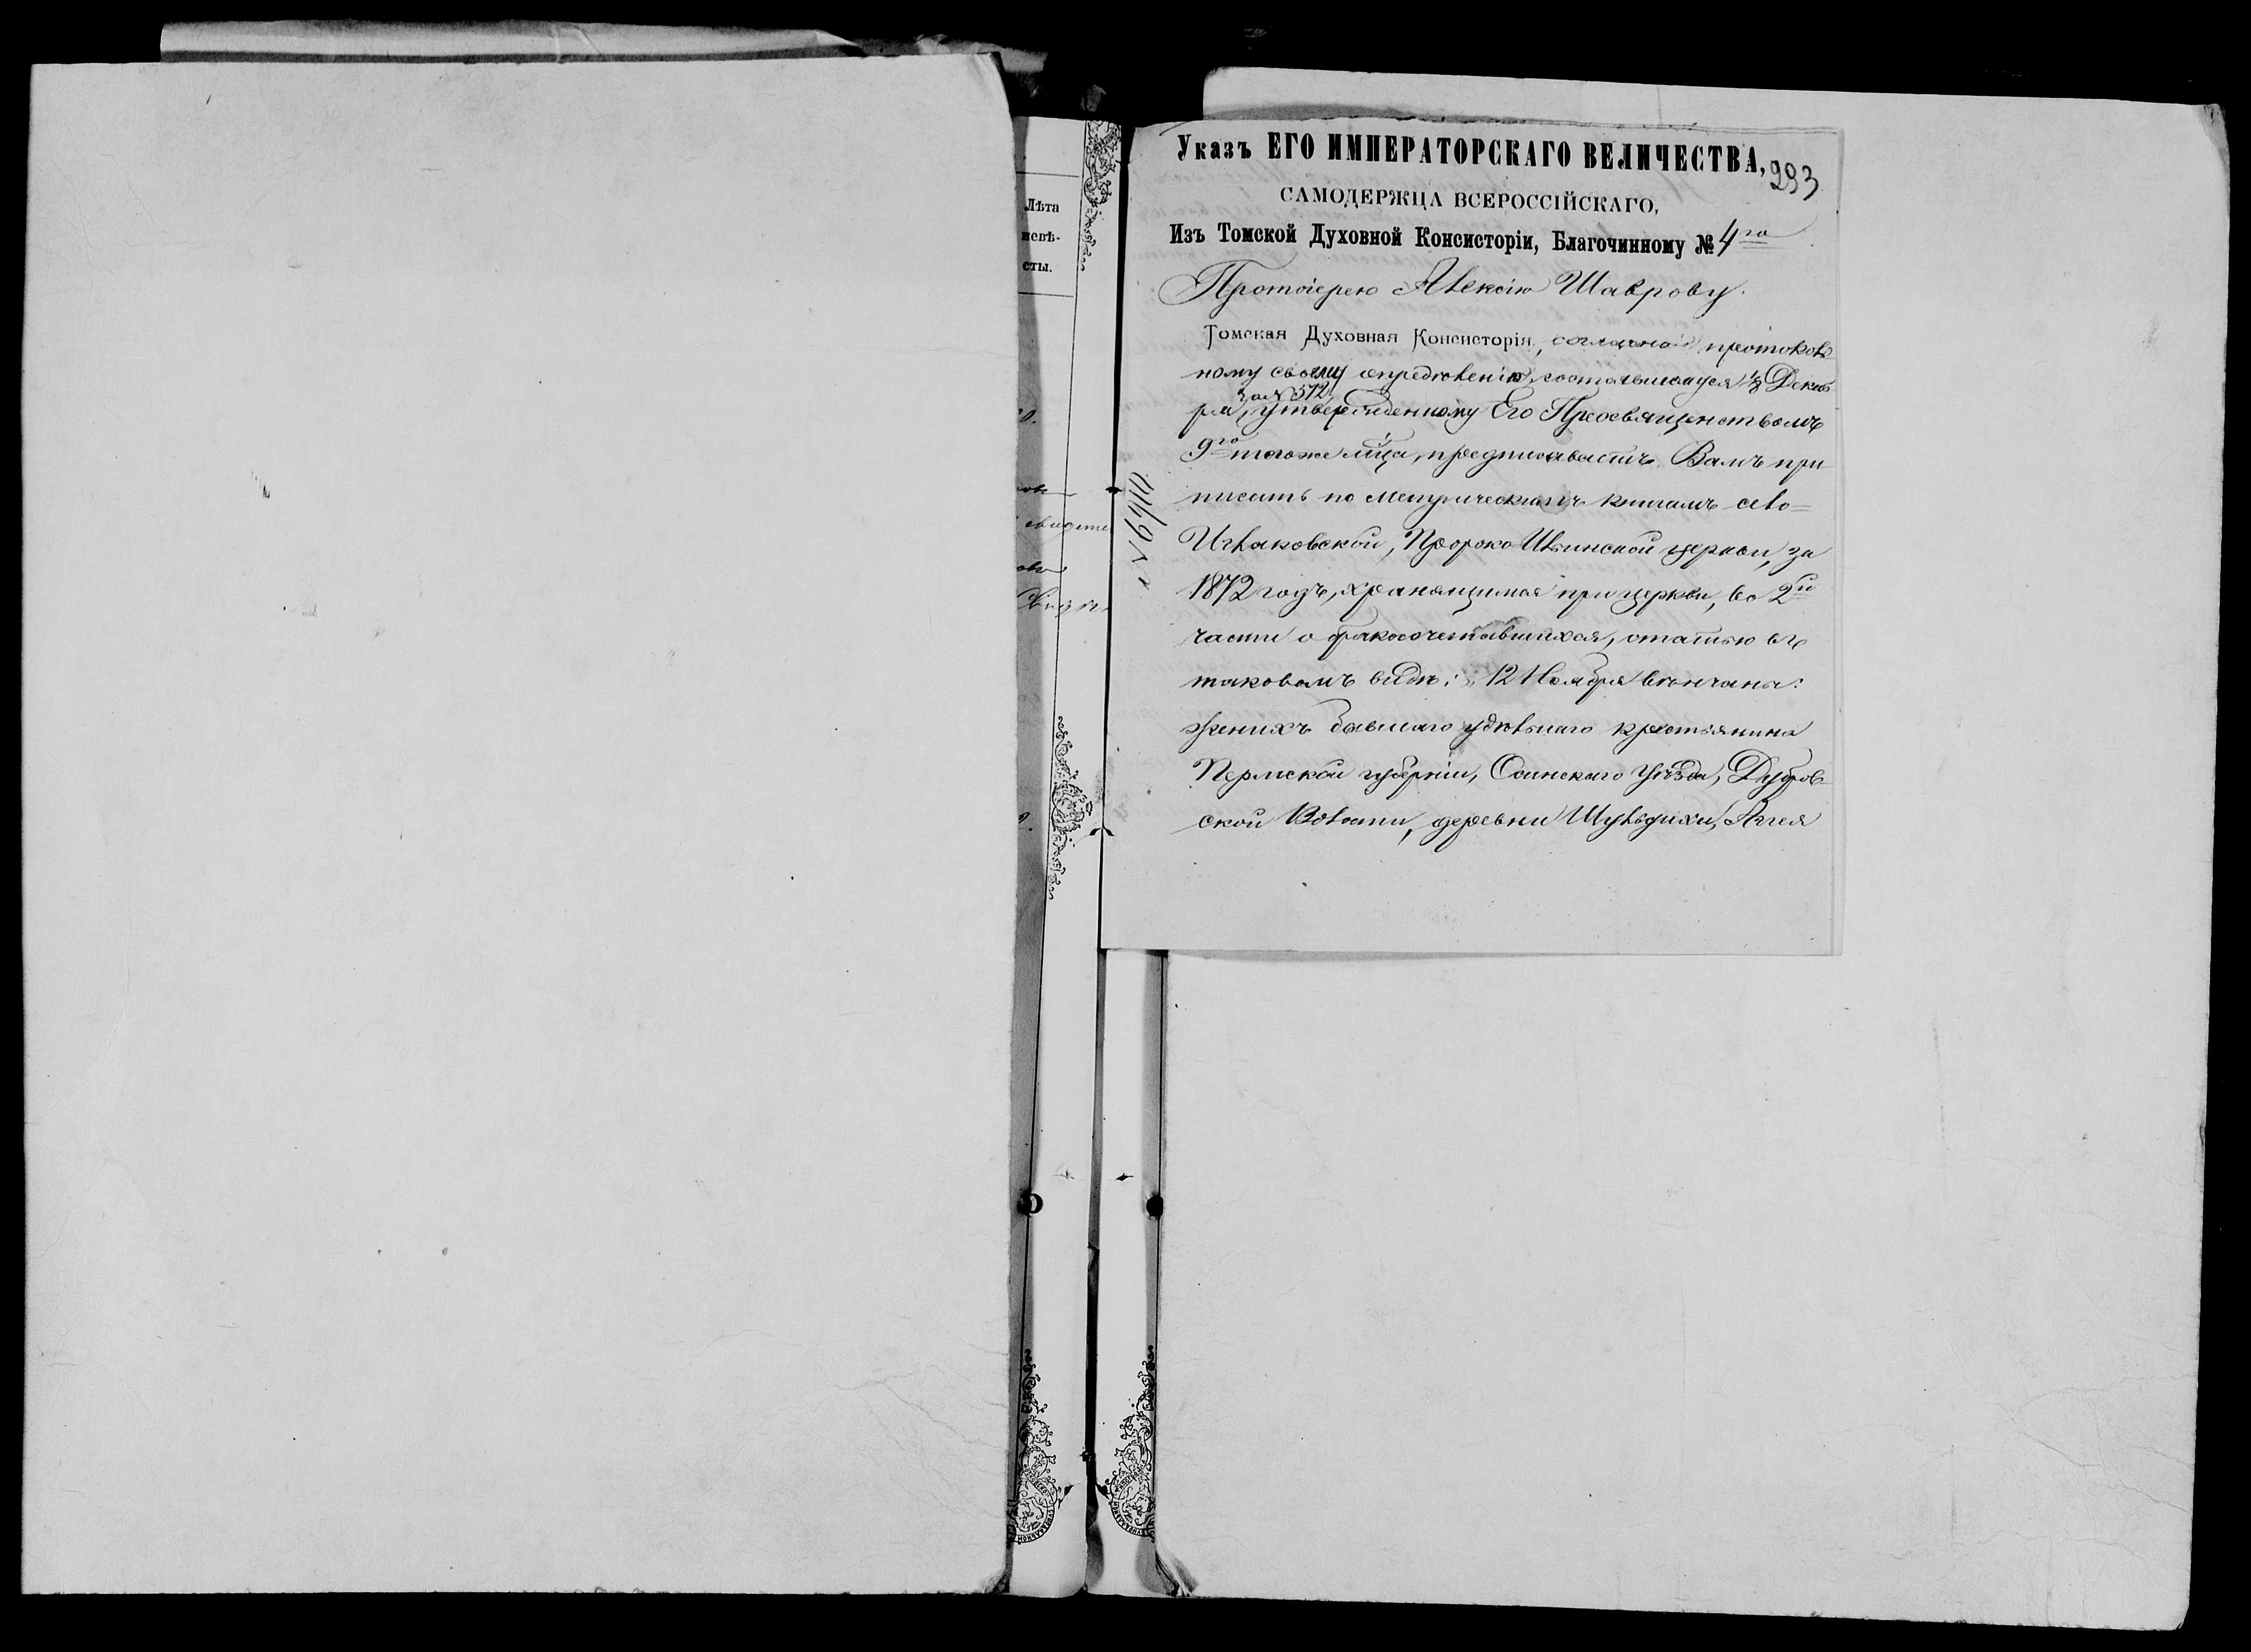 Лѣта
невѣ-
сты.
Указъ ЕГО ИМПЕРАТОРСКАГО ВЕЛИЧЕСТВА,
293
САМОДЕРЖЦА ВСЕРОССІЙСКАГО,
Изъ Томской Духовной Консисторіи, Благочинному № 4го
Протоіерею Алексію Шаврову.
Томская Духовная Консисторія, согласно протоколь-
ному своему опредѣленію, состоявшемуся Декаб
за № 572
ря, утвержденному Его Преосвященствомъ
9го тогоже мца, предписываетъ Вамъ при
писать по метрическимъ книгамъ село-
Иглаковской, Пророко Ильинской церкви, за
1872 годъ, хранящимся при церкви, во 2й
части о бракосочетавшихся, статью въ
таковомъ видѣ: 12 Ноября вѣнчаны:
женихъ бывшаго удѣльнаго крестьянина
Пермской губерніи, Осинскаго уѣзда, Дубров-
ской Волости, деревни Шульдихи, Аггея
№ 6910